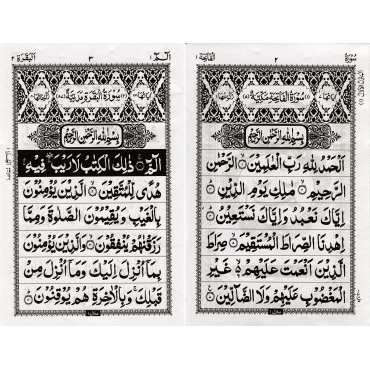 سورة
٢
الفاتحة ١
سُوْرَةُ الْفَاتِحَةِ مَكِّيَّةٌ
بِسْمِ اللهِ الرَّحْمٰنِ الرَّحِيْمِ
اَلْحَمْدُ لِلّٰهِ رَبِّ الْعٰلَمِيْنَ ۝ الرَّحْمٰنِ
الرَّحِيْمِ ۝ مٰلِكِ يَوْمِ الدِّيْنِ ۝
اِيَّاكَ نَعْبُدُ وَاِيَّاكَ نَسْتَعِيْنُ ۝
اِهْدِنَا الصِّرَاطَ الْمُسْتَقِيْمَ ۝ صِرَاطَ
الَّذِيْنَ اَنْعَمْتَ عَلَيْهِمْ ۝ غَيْرِ
الْمَغْضُوْبِ عَلَيْهِمْ وَلَا الضَّآلِّيْنَ ۝
الٓمّٓ ١
٣
البقرة ٢
سُوْرَةُ الْبَقَرَةِ مَدَنِيَّةٌ
بِسْمِ اللهِ الرَّحْمٰنِ الرَّحِيْمِ
الٓمّٓ ۝ ذٰلِكَ الْكِتٰبُ لَا رَيْبَ فِيْهِ
هُدًى لِّلْمُتَّقِيْنَ ۝ الَّذِيْنَ يُؤْمِنُوْنَ
بِالْغَيْبِ وَيُقِيْمُوْنَ الصَّلٰوةَ وَمِمَّا
رَزَقْنٰهُمْ يُنْفِقُوْنَ ۝ وَالَّذِيْنَ يُؤْمِنُوْنَ
بِمَآ اُنْزِلَ اِلَيْكَ وَمَآ اُنْزِلَ مِنْ
قَبْلِكَ وَبِالْاٰخِرَةِ هُمْ يُوْقِنُوْنَ ۝